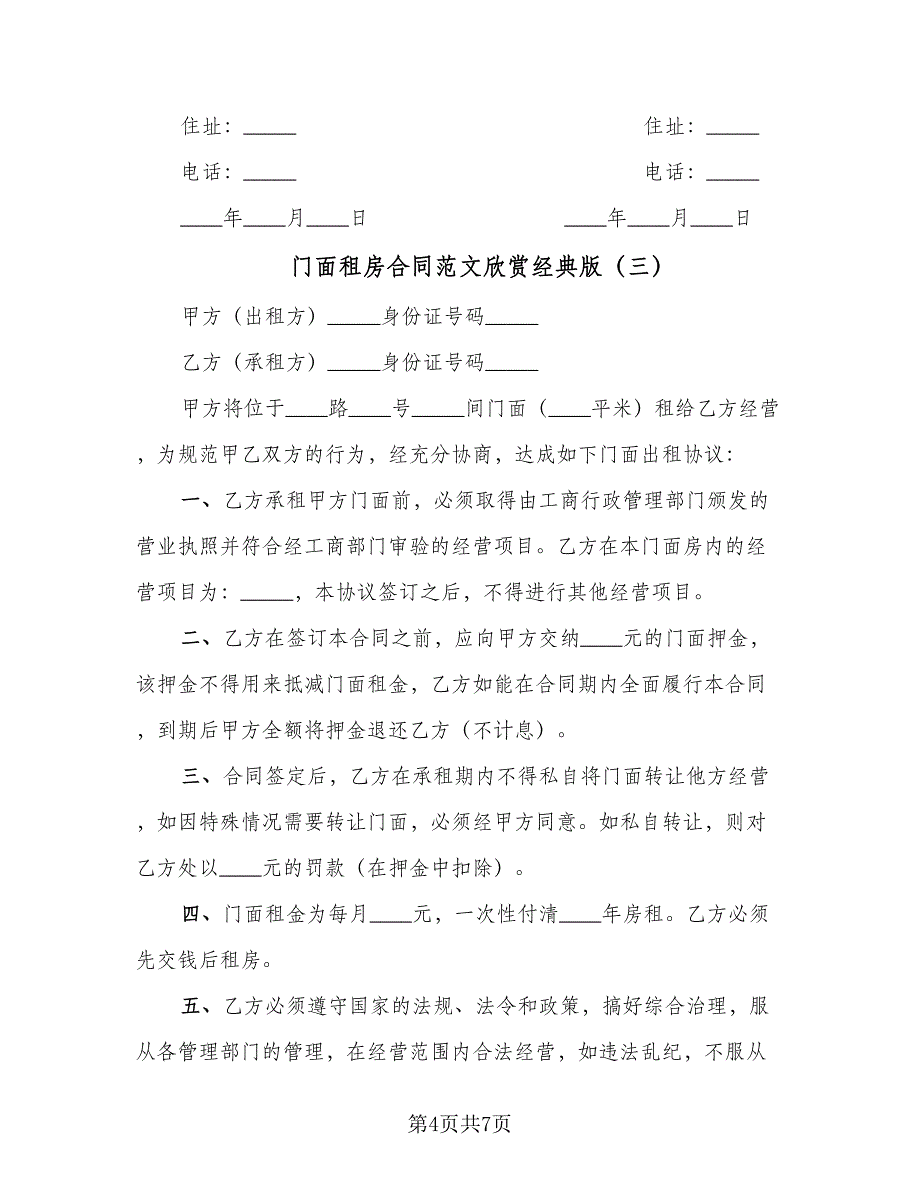 住址：_____ 住址：_____
电话：_____ 电话：_____
____年____月____日 ____年____月____日
门面租房合同范文欣赏经典版（三）
甲方（出租方）_____身份证号码_____
乙方（承租方）_____身份证号码_____
甲方将位于____路____号_____间门面（____平米）租给乙方经营
，为规范甲乙双方的行为，经充分协商，达成如下门面出租协议：
一、乙方承租甲方门面前，必须取得由工商行政管理部门颁发的
营业执照并符合经工商部门审验的经营项目。乙方在本门面房内的经
营项目为：_____，本协议签订之后，不得进行其他经营项目。
二、乙方在签订本合同之前，应向甲方交纳____元的门面押金，
该押金不得用来抵减门面租金，乙方如能在合同期内全面履行本合同
，到期后甲方全额将押金退还乙方（不计息）。
三、合同签定后，乙方在承租期内不得私自将门面转让他方经营
，如因特殊情况需要转让门面，必须经甲方同意。如私自转让，则对
乙方处以____元的罚款（在押金中扣除）。
四、门面租金为每月____元，一次性付清____年房租。乙方必须
先交钱后租房。
五、乙方必须遵守国家的法规、法令和政策，搞好综合治理，服
从各管理部门的管理，在经营范围内合法经营，如违法乱纪，不服从
第4页共7页